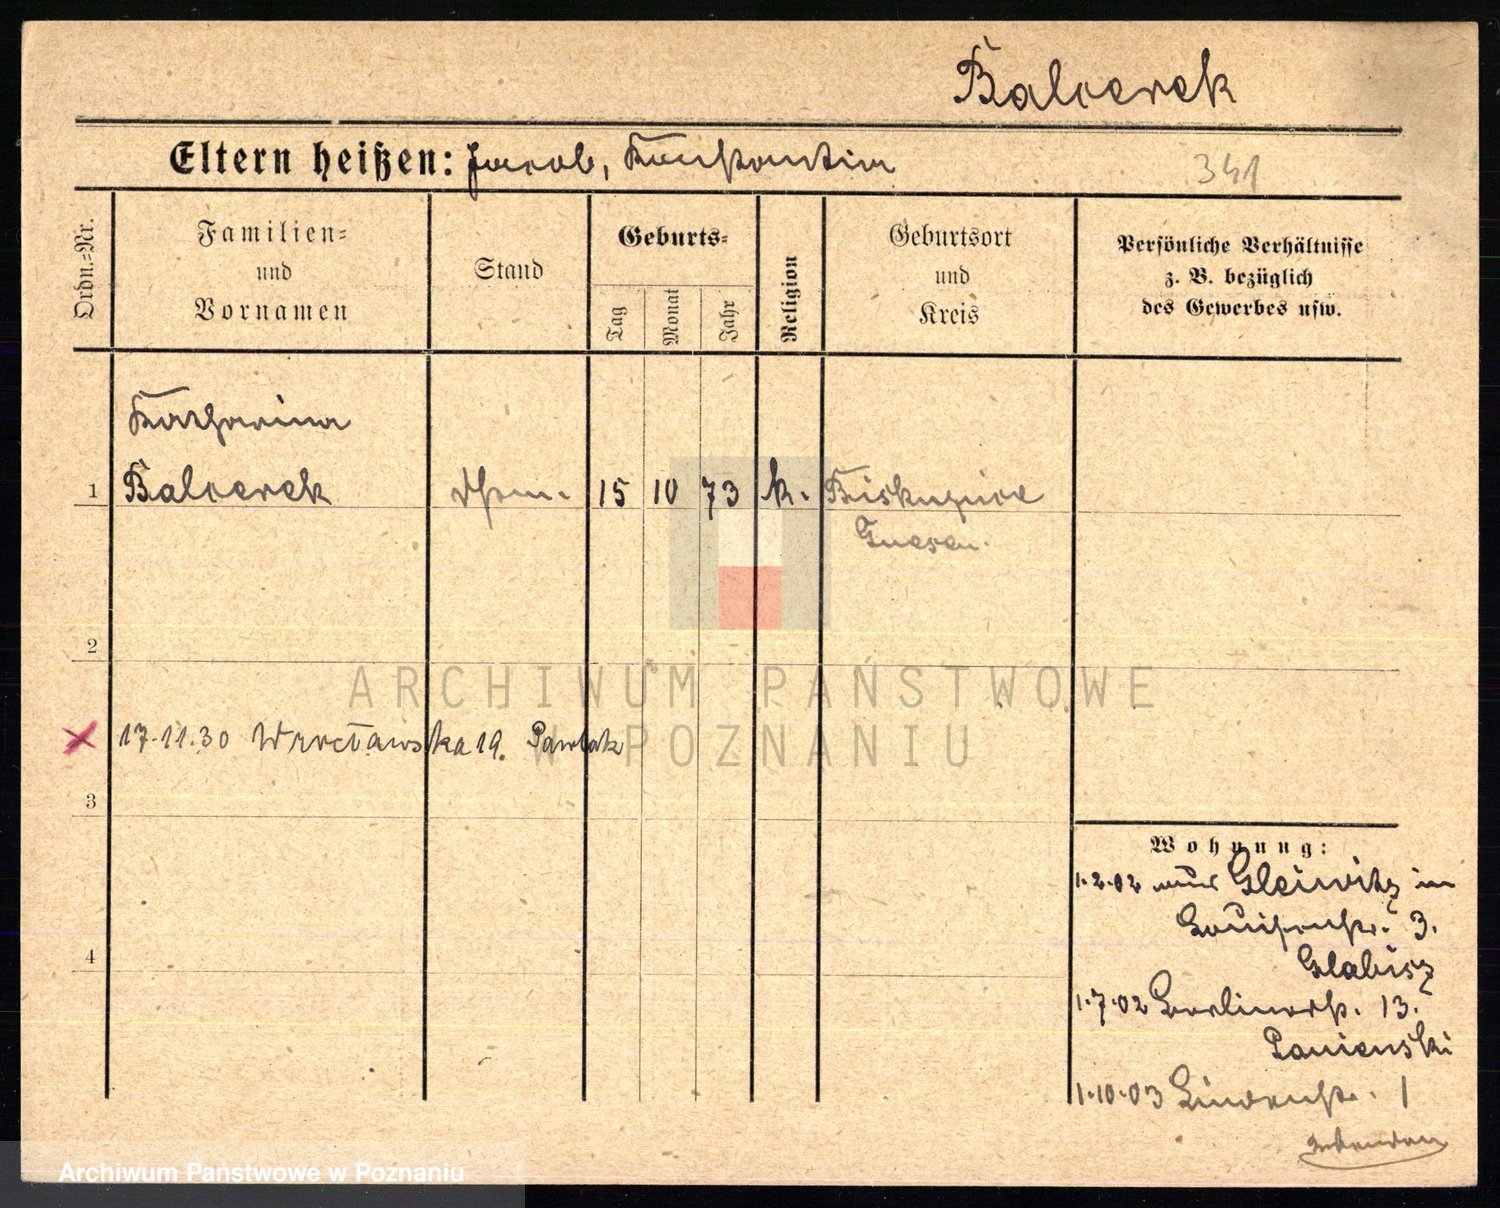 Balcerek
Eltern heißen: Jacob, Konstantia
341
Ordn.-Nr.
Familien-
und
Vornamen
Stand
Geburts-
Tag
Monat
Jahr
Religion
Geburtsort
und
Kreis
Persönliche Verhältnisse
z. B. bezüglich
des Gewerbes usw.
Katharina
1 Balcerek 15 10 73 k. Biskupice
Gnesen.
2
17.11.30 Wrocławska 19. Pawlak
3
4
Wohnung:
1.2.02 aus Gleiwitz in
Louisenstr. 3.
Glabisz
1.7.02 Berlinerstr. 13.
Panienski
1.10.03 Lindenstr. 1
ARCHIWUM PAŃSTWOWE
W POZNANIU
Archiwum Państwowe w Poznaniu